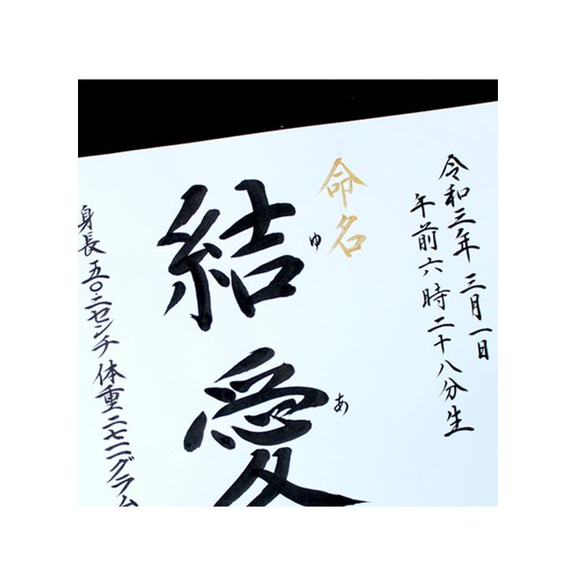 令和三年 三月一日
午前六時二十八分生
命名
結愛
ゆ
あ
身長 五〇・二センチ 体重 二七二一グラム